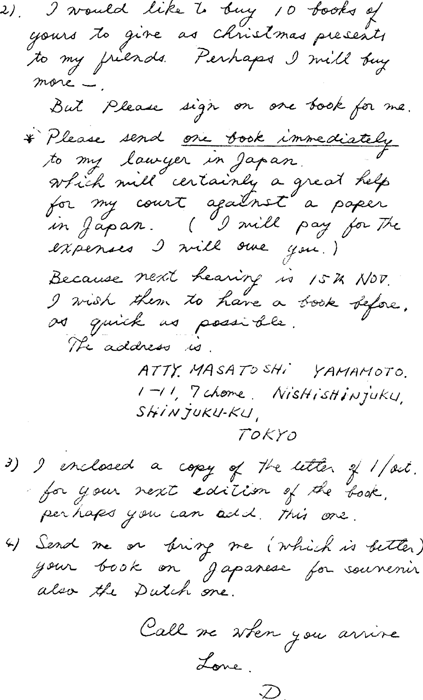 2). I would like to buy 10 books of
yours to give as christmas presents
to my friends. Perhaps I will buy
more —.
But Please sign on one book for me.
* Please send one book immediately
to my lawyer in Japan.
which will certainly a great help
for my court against a paper
in Japan. ( I will pay for the
expenses I will owe you.)
Because next hearing is 15th Nov.
I wish them to have a book before,
as quick as possible.
The address is.
ATTY. MASATOSHI YAMAMOTO.
1-11, 7 chome. NISHISHINJUKU,
SHINJUKU-KU,
TOKYO
3) I enclosed a copy of the letter of 1/oct.
for your next edition of the book.
perhaps you can add. this one.
4) Send me or bring me (which is better)
your book on Japanese for souvenir
also the Dutch one.
Call me when you arrive
Love.
D.